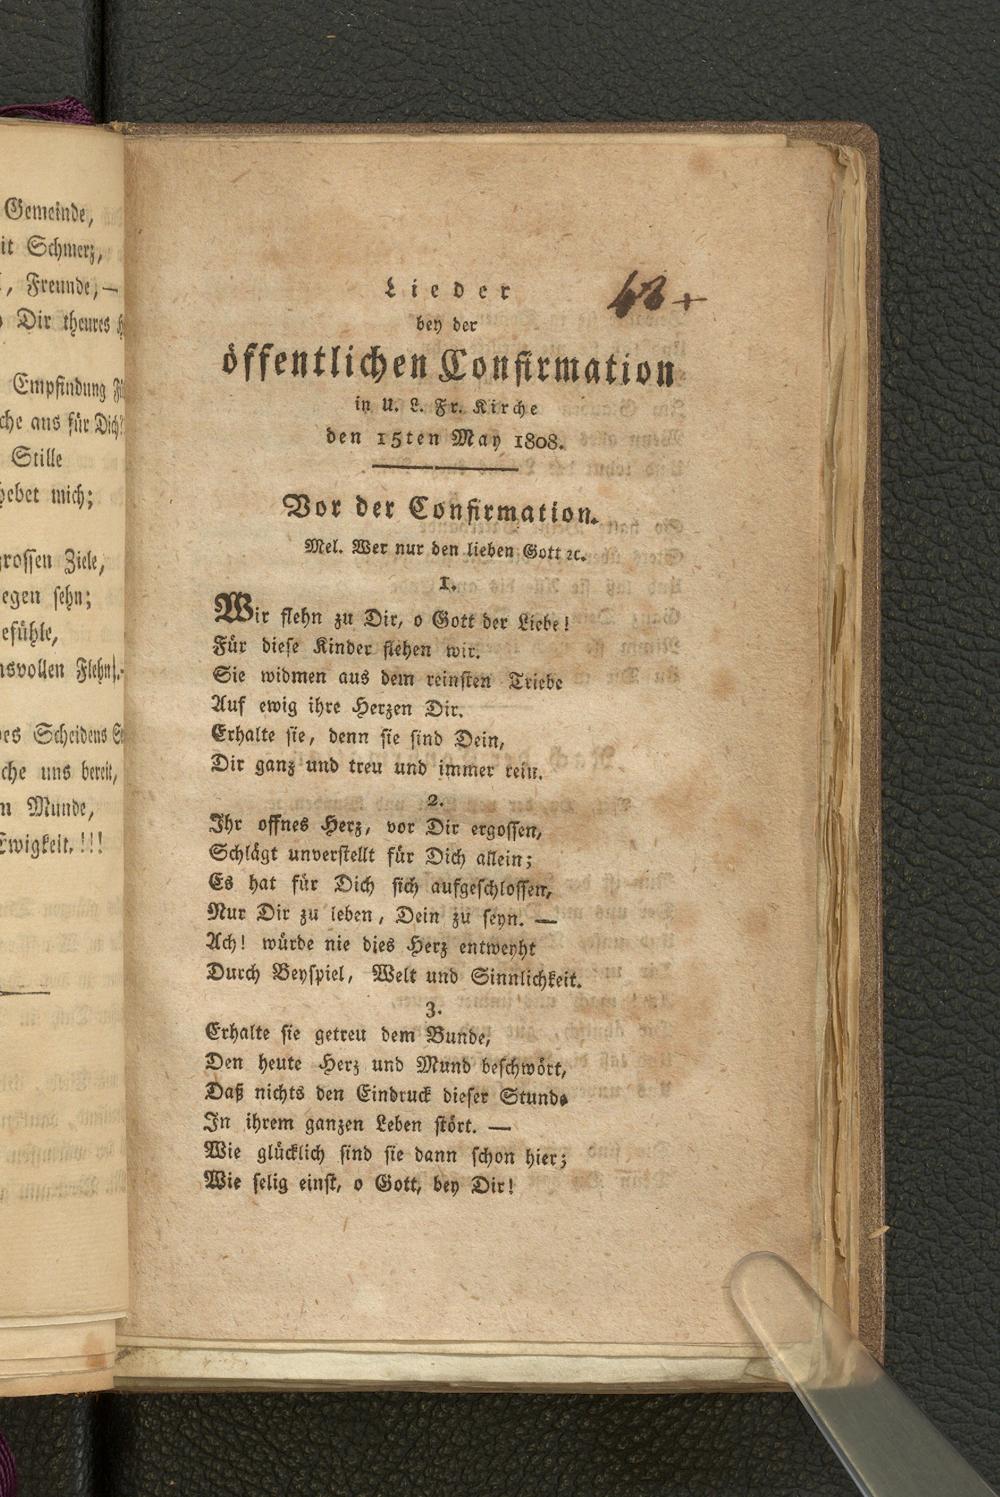 Gemeinde,
it Schmerz,
, Freunde,—
Dir theures
Empfindung
che aus für Dich
Stille
hebet mich;
grossen Ziele,
egen sehn;
efühle,
nsvollen Flehn!.
des Scheidens
che uns bereit,
n Munde,
Ewigkeit.!!!
Lieder
48+
bey der
öffentlichen Confirmation
in U. L. Fr. Kirche
den 15ten May 1808.
Vor der Confirmation.
Mel. Wer nur den lieben Gott ꝛc.
1.
Wir flehn zu Dir, o Gott der Liebe!
Für diese Kinder flehen wir.
Sie widmen aus dem reinsten Triebe
Auf ewig ihre Herzen Dir.
Erhalte sie, denn sie sind Dein,
Dir ganz und treu und immer rein.
2.
Ihr offnes Herz, vor Dir ergossen,
Schlägt unverstellt für Dich allein;
Es hat für Dich sich aufgeschlossen,
Nur Dir zu leben, Dein zu seyn. —
Ach! würde nie dies Herz entweyht
Durch Beyspiel, Welt und Sinnlichkeit.
3.
Erhalte sie getreu dem Bunde,
Den heute Herz und Mund beschwört,
Daß nichts den Eindruck dieser Stunde
In ihrem ganzen Leben stört. —
Wie glücklich sind sie dann schon hier;
Wie selig einst, o Gott, bey Dir!